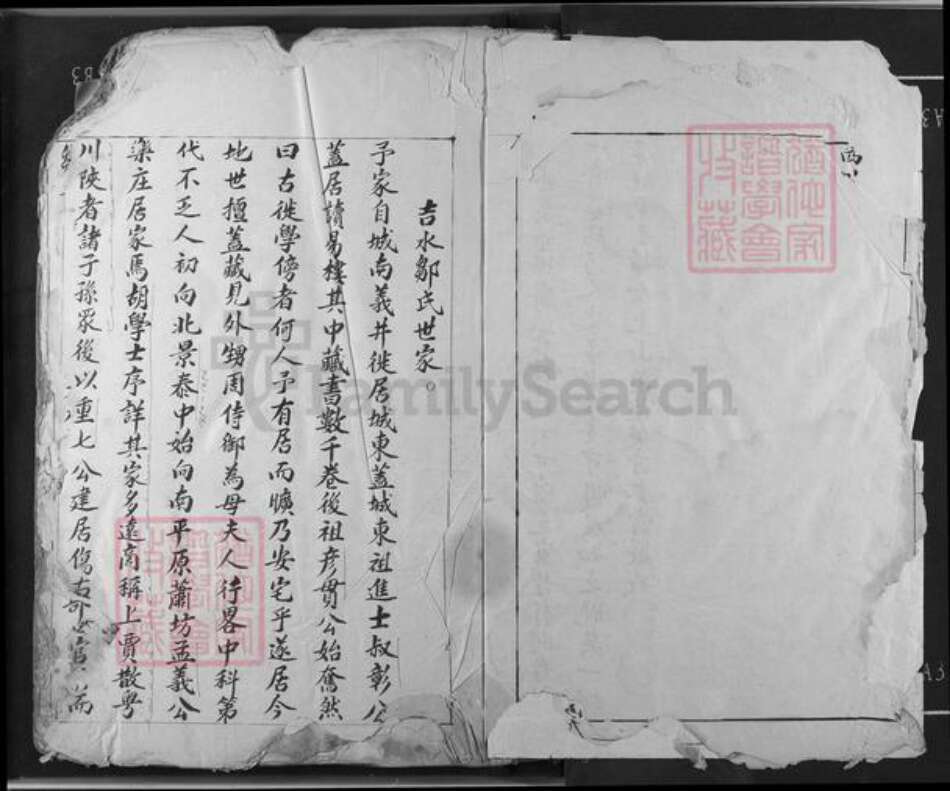 吉水鄒氏世家。
予家自城南義井徙居城東蓋城東祖進士叔彰公
蓋居讀易樓其中藏書數千卷後祖彦贯公始奮然
曰古徙學傍者何人予有居而曠乃安宅乎遂居今
地世擅蓋藏見外甥周侍御為母夫人行畧中科第
代不乏人初向北景泰中始向南平原蕭坊孟義公
樂庄居家焉胡學士序詳其家多遠商稱上賈散粤
川陝者諸子孫眾後以重七公建居傷右
譜學會
收藏
FamilySearch